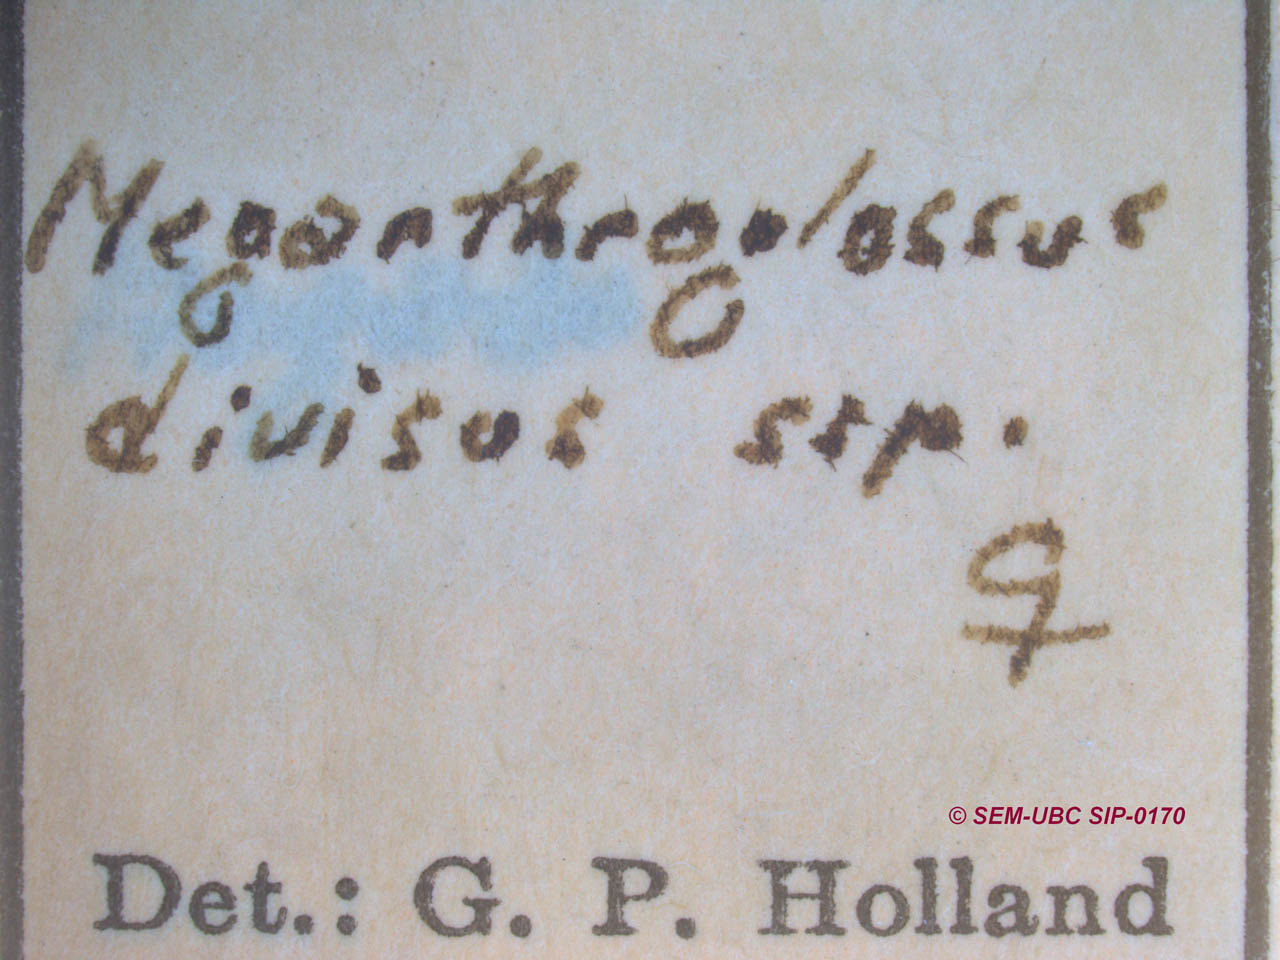 Megarthroglossus
divisus ssp.
♀
© SEM-UBC SIP-0170
Det.: G. P. Holland